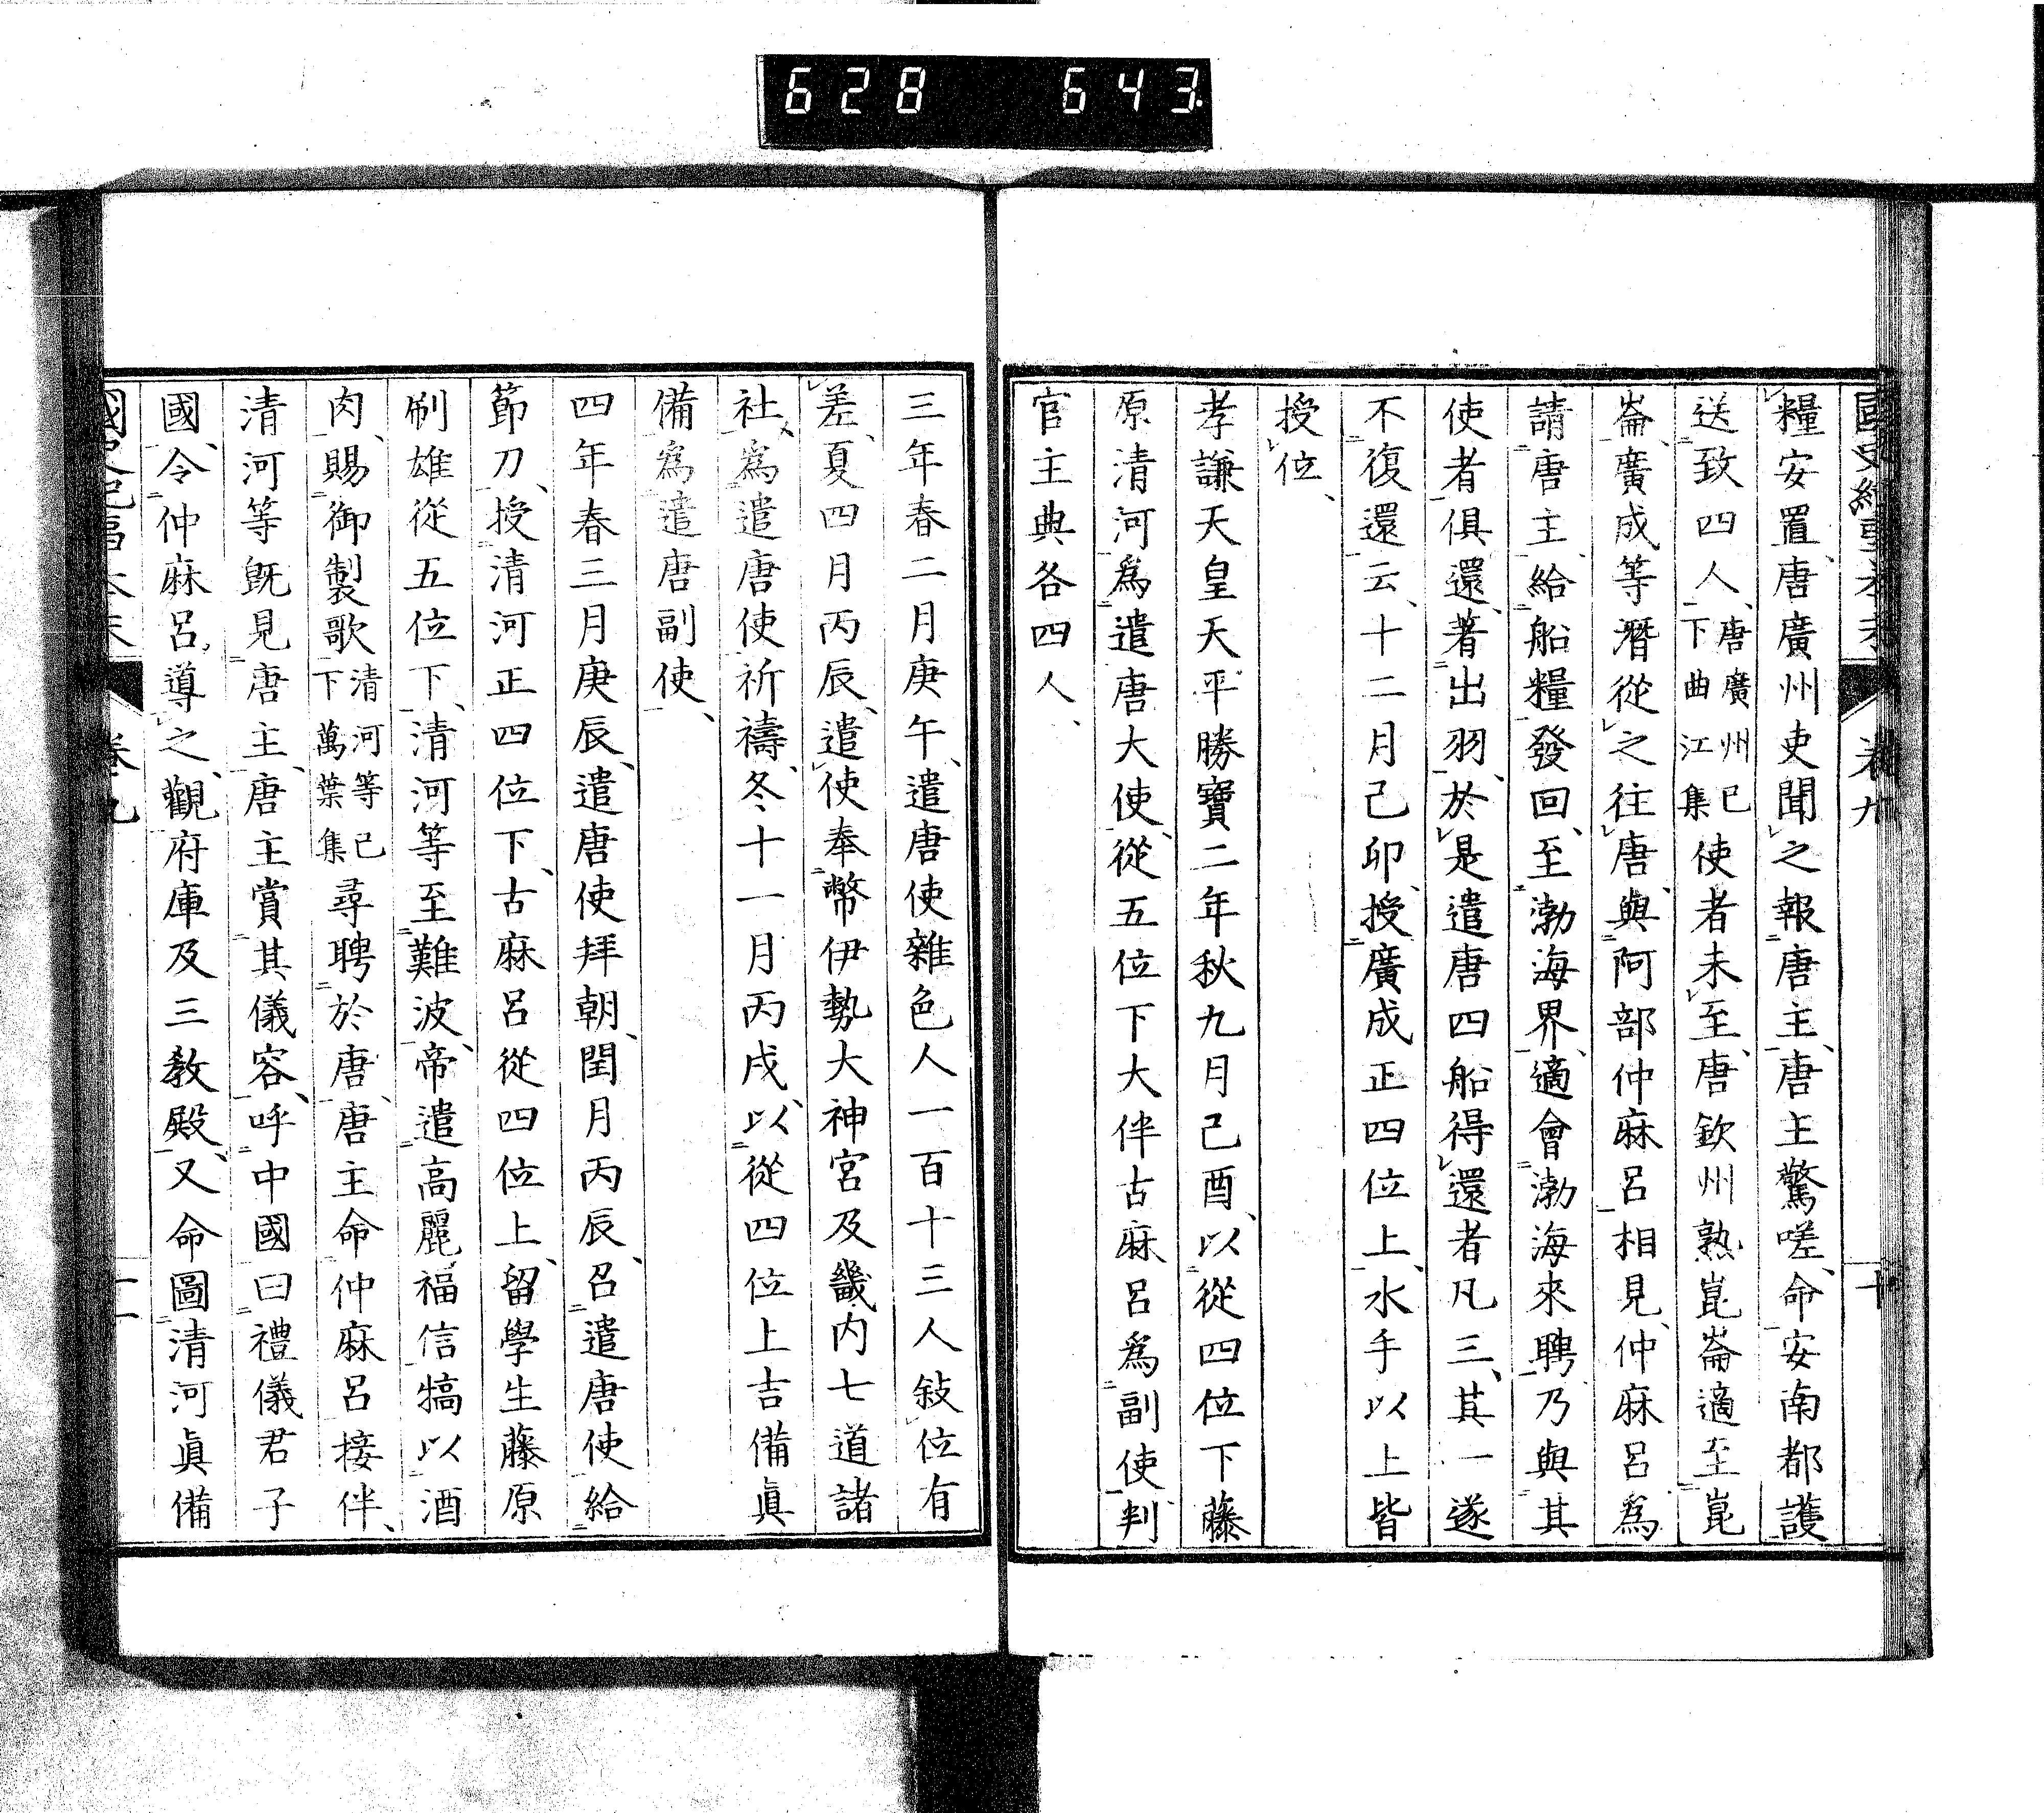 628 643
糧安置、唐廣州吏聞之報唐主、唐主驚嗟、命安南都護
送致四人、唐廣州已下曲江集使者未至唐、欽州熟崑崙適至崑
崙、廣成等潛從之往唐、與阿部仲麻呂相見、仲麻呂爲
請唐主、給船糧發回、至渤海界、適會渤海來聘乃與其
使者俱還、著出羽、於是遣唐四船得還者凡三、其一遂
不復還云、十二月己卯、授廣成正四位上、水手以上皆
授位、
孝謙天皇天平勝寶二年秋九月己酉、以從四位下藤
原清河爲遣唐大使、從五位下大伴古麻呂爲副使、判
官主典各四人、
三年春二月庚午、遣唐使雜色人一百十三人敍位有
差、夏四月丙辰、遣使奉幣伊勢大神宮及畿內七道諸
社、爲遣唐使祈禱、冬十一月丙戌、以從四位上吉備眞
備爲遣唐副使、
四年春三月庚辰、遣唐使拜朝、閏月丙辰、召遣唐使給
節刀、授清河正四位下、古麻呂從四位上、留學生藤原
刷雄從五位下、清河等至難波、帝遣高麗福信犒以酒
肉、賜御製歌清河等已下萬葉集尋聘於唐、唐主命仲麻呂接伴、
清河等既見唐主、唐主賞其儀容、呼中國曰禮儀君子
國、令仲麻呂導之、觀府庫及三教殿、又命圖清河眞備
卷九